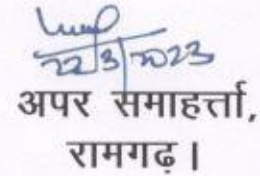 22/3/2023
अपर समाहर्त्ता,
रामगढ़।